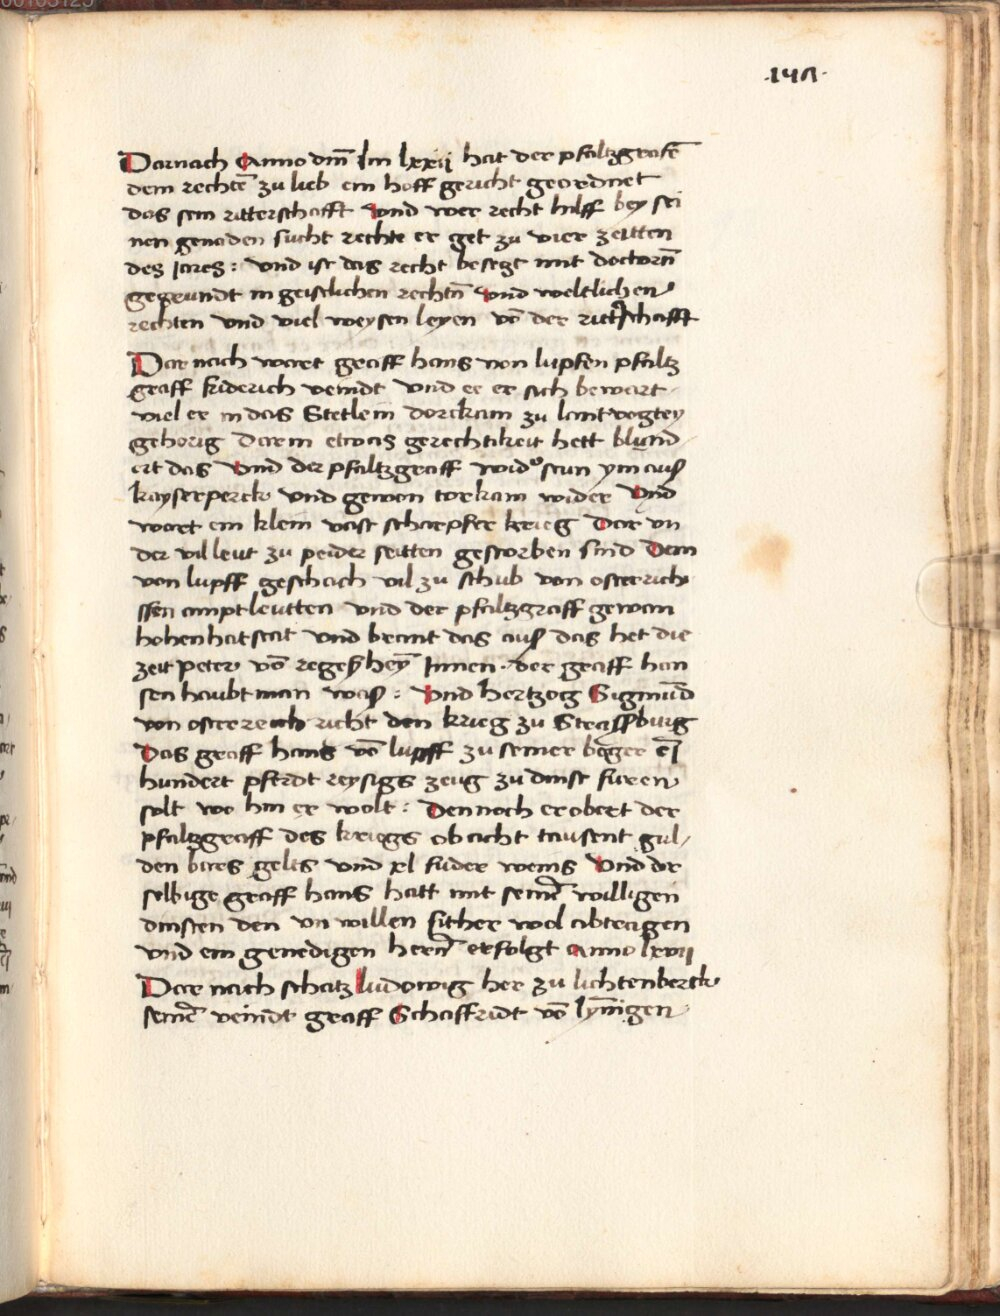 ·147·
Darnach Anno dm̄ Im lxxij hat der pfaltzgrafe
dem rechtē zu lieb ein hoff gericht geordnet
das sein ritterschafft Vnd wer recht hilff bey sei
nen genaden sucht rechte er get zu vier zeitten
des Jares : vnd ist das recht besetzt mit doctorn̄
gegrundt in geistlichen rechtn̄ Vnd weltlichen
rechten vnd viel weysen leyen vō der ritterschafft
Dar nach wart graff hans von lupfen pfaltz
graff friderich veindt vnd ee er sich bewart
viel er in das Stetlein dorckam zu lantvogtey
gehorig Darein etwas gerechtikeit hett blund
ert das Vnd der pfaltzgraff wider staun ym auß
kayserperck vnd gewan torkam wider Vnd
wart ein klein vast scharpfer krieg Dar vn
der vil leut zu peider seitten gestorben sind Dem
von lupff geschach vil zu schub von osterrich
ssen amptleutten vnd der pfaltzgraff gewan
hohenhatstat vnd brant das auß das het die
zeit peter vō regeßheȳ Innen · der graff han
sen haubtman waß : Vnd hertzog Sigmūd
von osterreich richt den krieg zu Straßburg
Das graff hans vō lupff zu seiner beger
hundert pferdt reysigs zeug zu dinst furen
solt wo hin er wolt : Dennoch erobert der
pfaltzgraff des kriegs ob acht tausent gul
den bares gelts vnd xl fuder weins Vnd der
selbige graff hans hatt mit seinē willigen
dinsten den vn willen sither wol abtragen
vnd ein genedigen hern̄ erfolgt Anno lxvij
Dar nach schatz ludowig her zu lichtenberck
seinē veindt graff Schaffridt vō lyn̄igen